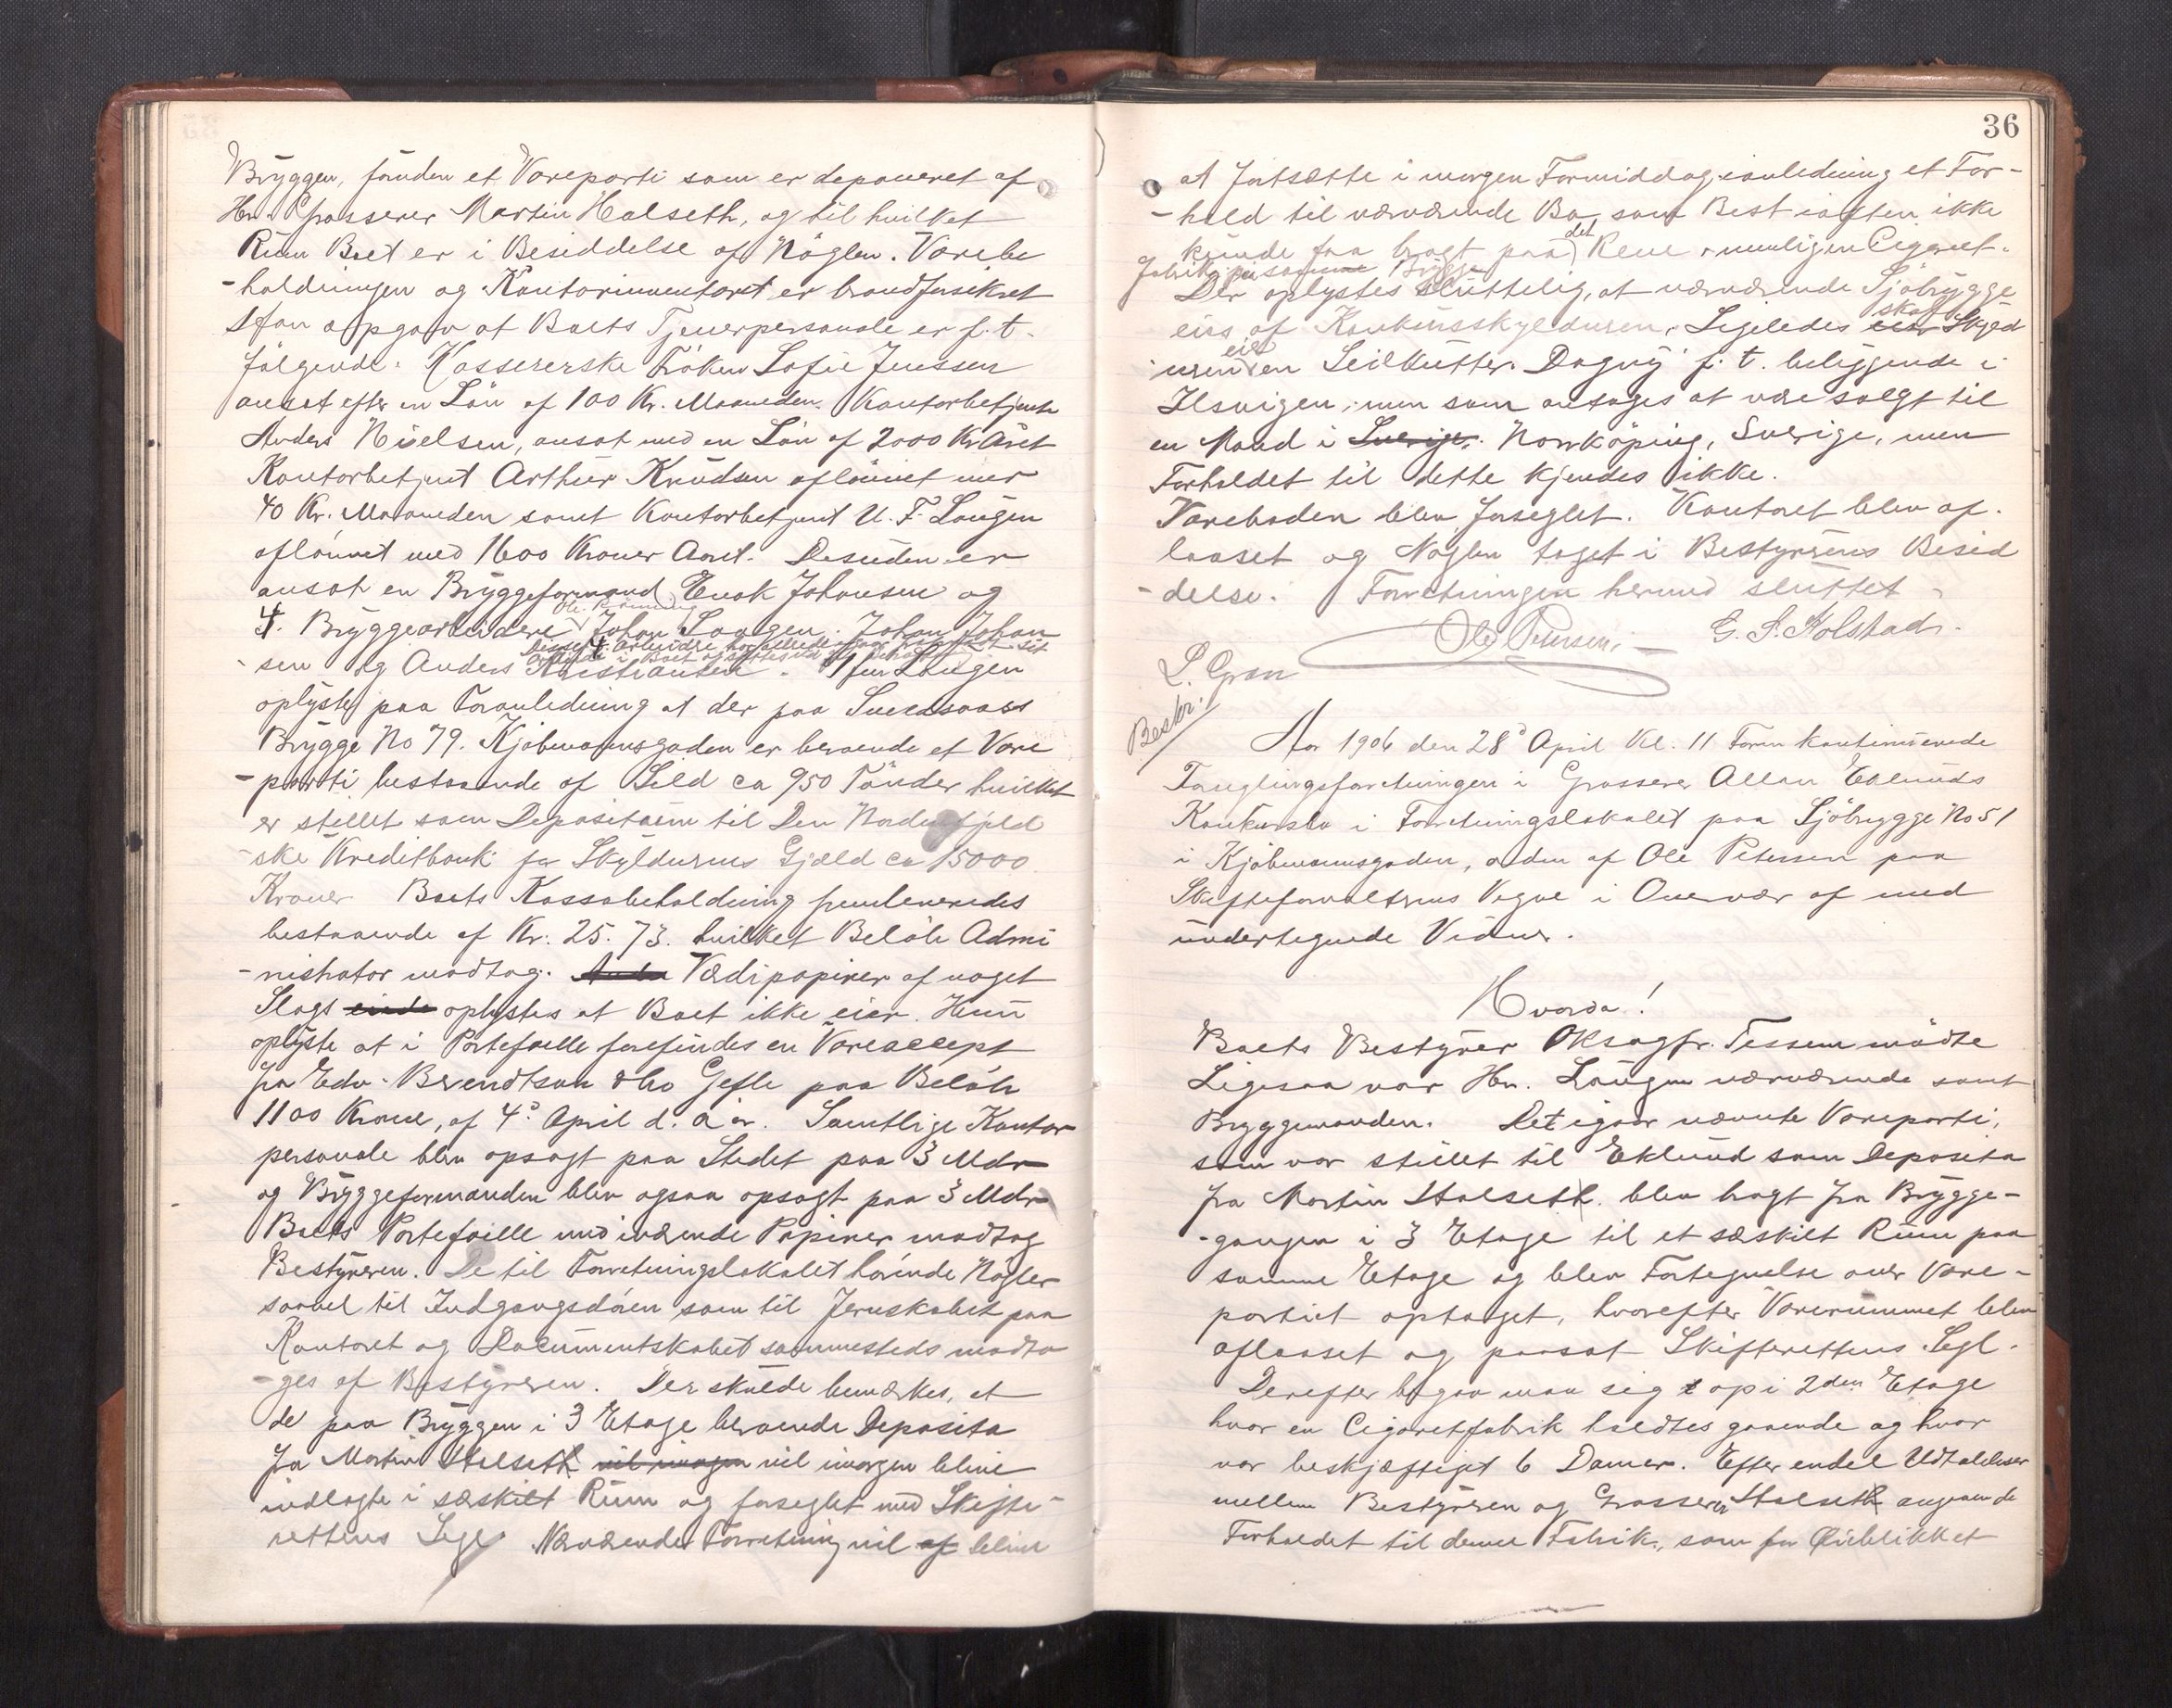 Bryggen, fandtes et Vareparti som er deponeret af
Hr. Grosserer Martin Halseth, og til hvilket
Rum Boet er i Besiddelse af Nöglen. Varebe
-holdningen og Kontorinventaret er brandforsikret
opgav at Boets Tjenerpersonale er f. t.
fölgende: Kassererske Fröken Sofie Jenssen
ansat efter en Lön af 100 Kr. Maaneden. Kontorbetjent
Anders Nielsen, ansat med en Lön af 2000 Kr Året
Kontorbetjent Arthur Knudsen aflönnet med
40 Kr. Maaneden samt Kontorbetjent U. F. Laugen
aflönnet med 1600 Kroner Aaret. Desuden er
ansat en Bryggeformand Enok Johansen og
4. Bryggearbeidere Ole Rönning Johan Laugen. Johan Johan
Disse 4 arbeidere
-sen og Anders Kristiansen. Laugen
oplyste paa Foranledning at der paa Svendsaas
Brygge No 79. Kjöbmannsgaden er beroende et Vare
-parti bestaaende af Sild ca 950 Tönder hvilket
er stillet som Depositum til Den Nordenfjeld
-ske Kreditbank for Skyldnerens Gjæld ca 15000
Kroner Boets Kassabeholdning
bestaaende af Kr. 25.73. hvilket Belöb Admi
-nistrator modtog. Værdipapirer af noget
Slags oplystes at Boet ikke eier. Hun
oplyste at i Portefoille forefindes en Vareaccept
fra Edv. Berendtson & Co Gefle paa Belöb
1100 Kroner, af 4de April d. aar. Samtlige Kontor
personale blev opsagt paa Stedet paa 3 Mdr
og Bryggeformanden blev ogsaa opsagt paa 3 Mdr
Boets Portefoille med iværende Papirer modtog
Bestyreren. De til Forretningslokalet hörende Nögler
saavel til Indgangsdören som til Jernskabet paa
Kontoret og Documentskabet sammesteds modto
-ges af Bestyreren. Der skulde bemærkes, at
de paa Bryggen i 3 Etage beroende Deposita
fra Martin Halseth vil imorgen vil imorgen blive
indlagte i særskilt Rum og forseglet med Skifte-
rettens Segl Nærværende Forretning vil af blive
36
at fortsætte i morgen Formiddag i anledning et For-
-hold til nærværende Bo, som Best iaften ikke
kunde faa bragt paa det Rene, nemligen Cigaret-
fabrik paa samme Brygge
Der oplystes sluttelig, at nærværende Sjöbrygge
eies af Konkursskyldneren. Ligeledes skal Skyld
-neren eie en Seilkutter "Dagny" f. t. beliggende i
Ilsvigen, men som antages at være solgt til
en Mand i Sverige. Norrköping, Sverige, men
Forholdet til dette kjendes ikke.
Vareboden blev forseglet. Kontoret blev af-
laaset og Nöglen taget i Bestyrerens Besid
-delse. Forretningen hermed sluttet
Ole Petersen. G. S. Kolstad.
L. Gran
Bestr:
Aar 1906 den 28de April Kl. 11 Form kontinuerede
Forseglingsforretningen i Grosserer Allan Eklunds
Konkursbo i Forretningslokalet paa Sjöbrygge No 51
i Kjöbmannsgaden, af Ole Petersen paa
Skifteforvalterens Vegne i Overvær af med
undertegnede Vidner.
Hvorda!
Boets Bestyrer Oksagfr. Tessem mödte
Ligesaa var Hr. Laugen nærværende samt
Bryggemanden. Det igaar nævnte Vareparti,
som var stillet til Eklund som Deposita
fra Martin Halseth. blev bragt fra Brygge-
-gangen i 3 Etage til et særskilt Rum paa
samme Etage og blev Fortegnelse over Vare-
partiet optaget, hvorefter Varerummet blev
aflaaset og paasat Skifterettens Segl.
Derefter begav man sig op i 2den Etage
hvor en Cigaretfabrik holdtes gaaende og hvor
var beskjæftiget 6 Damer. Efter endel Udtalelser
mellem Bestyreren og Grosserer Halseth angaaende
Forholdet til denne Fabrik, som for Öieblikket